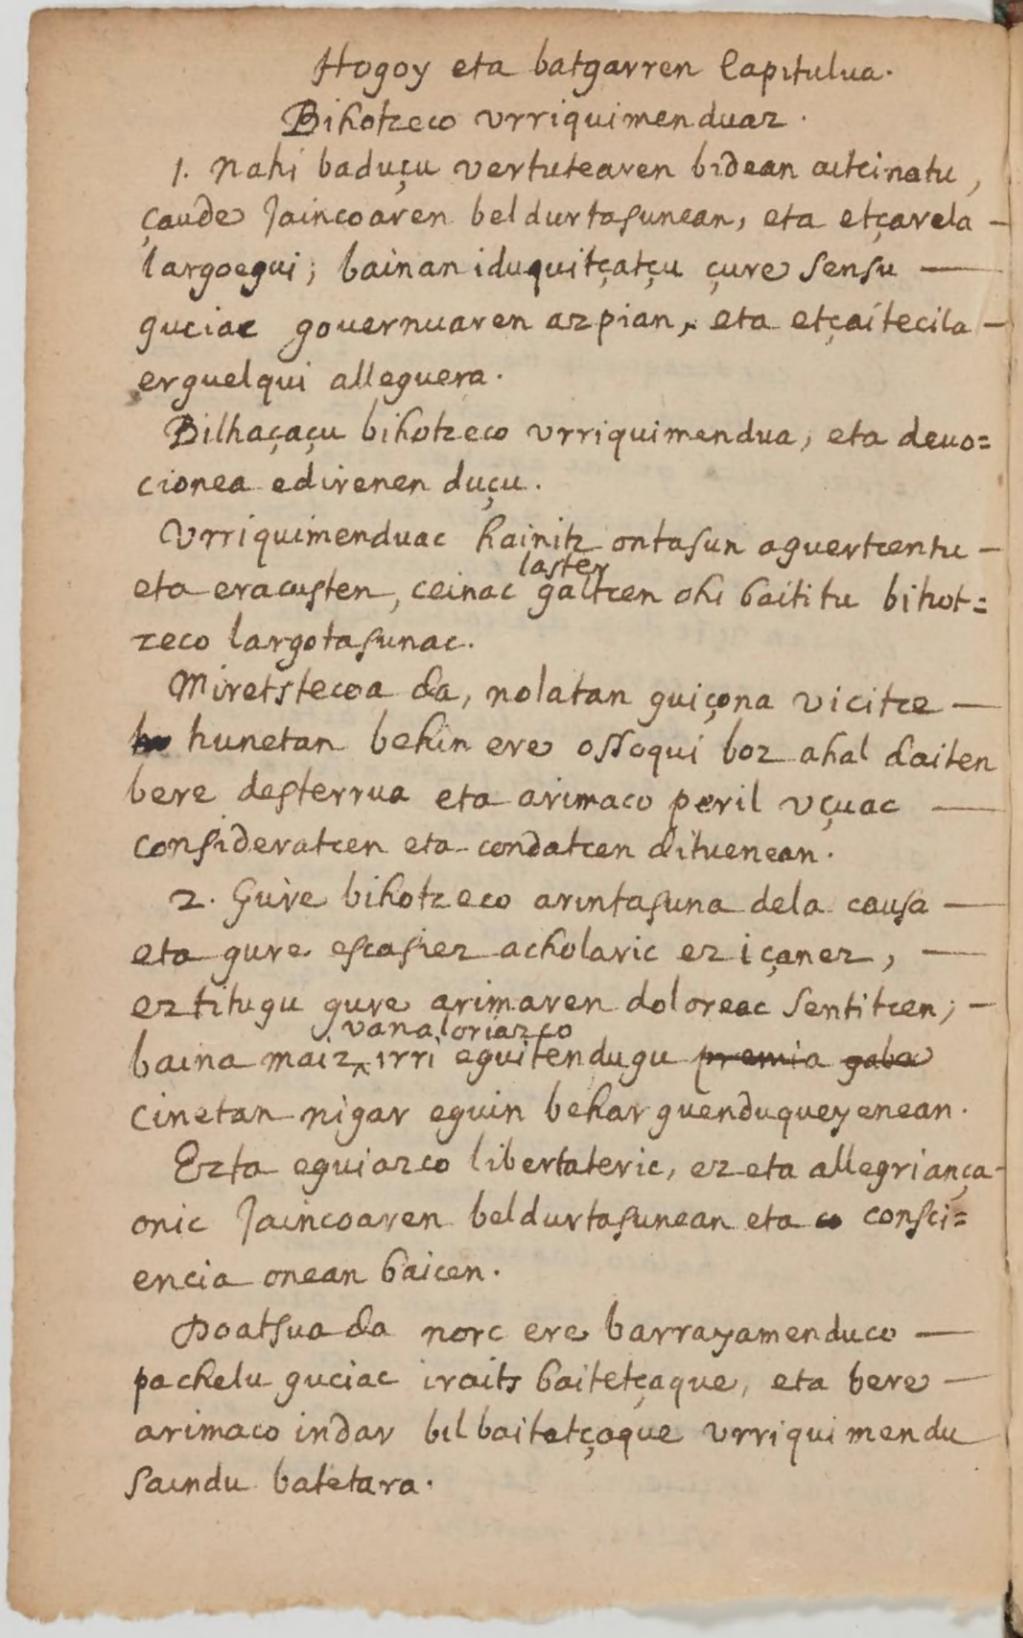 Hogoy eta batgarren Capitulua.
Bihotzeco vrriquimenduaz.
1. Nahi baduçu vertutearen bidean aitcinatu,
çaude Jaincoaren beldurtaſunean, eta etçarela —
largoegui; bainan iduquitçatçu çure ſenſu —
guciac gouernuaren azpian, eta etçaitecila —
erguelqui alleguera.
Bilhaçaçu bihotzeco vrriquimendua, eta deuo=
cionea edirenen duçu.
Vrriquimenduac hainitz ontaſun aguertcentu —
laster
eta eracuſten, ceinac galtcen ohi baititu bihot=
zeco largotaſunac.
Miretstecoa da, nolatan guiçona vicitce —
hunetan behin ere oſſoqui boz ahal daiten
bere deſterrua eta arimaco peril vçuac —
conſideratcen eta condatcen dituenean.
2. Gure bihotzeco arintaſuna dela cauſa —
eta gure eſcaſiez acholaric ez içanez, —
eztitugu gure arimaren doloreac ſentitcen; —
vanaloriazco
baina maiz ‸ irri eguitendugu premia gabe
cinetan nigar eguin behar guenduqueyenean.
Ezta eguiazco libertateric, ez eta allegriança
onic Jaincoaren beldurtaſunean eta conſci=
encia onean baicen.
Doatſua da norc ere barrayamenduco —
pachelu guciac iraits baitetçaque, eta bere —
arimaco indar bil baitetçaque vrriquimendu
ſaindu batetara.